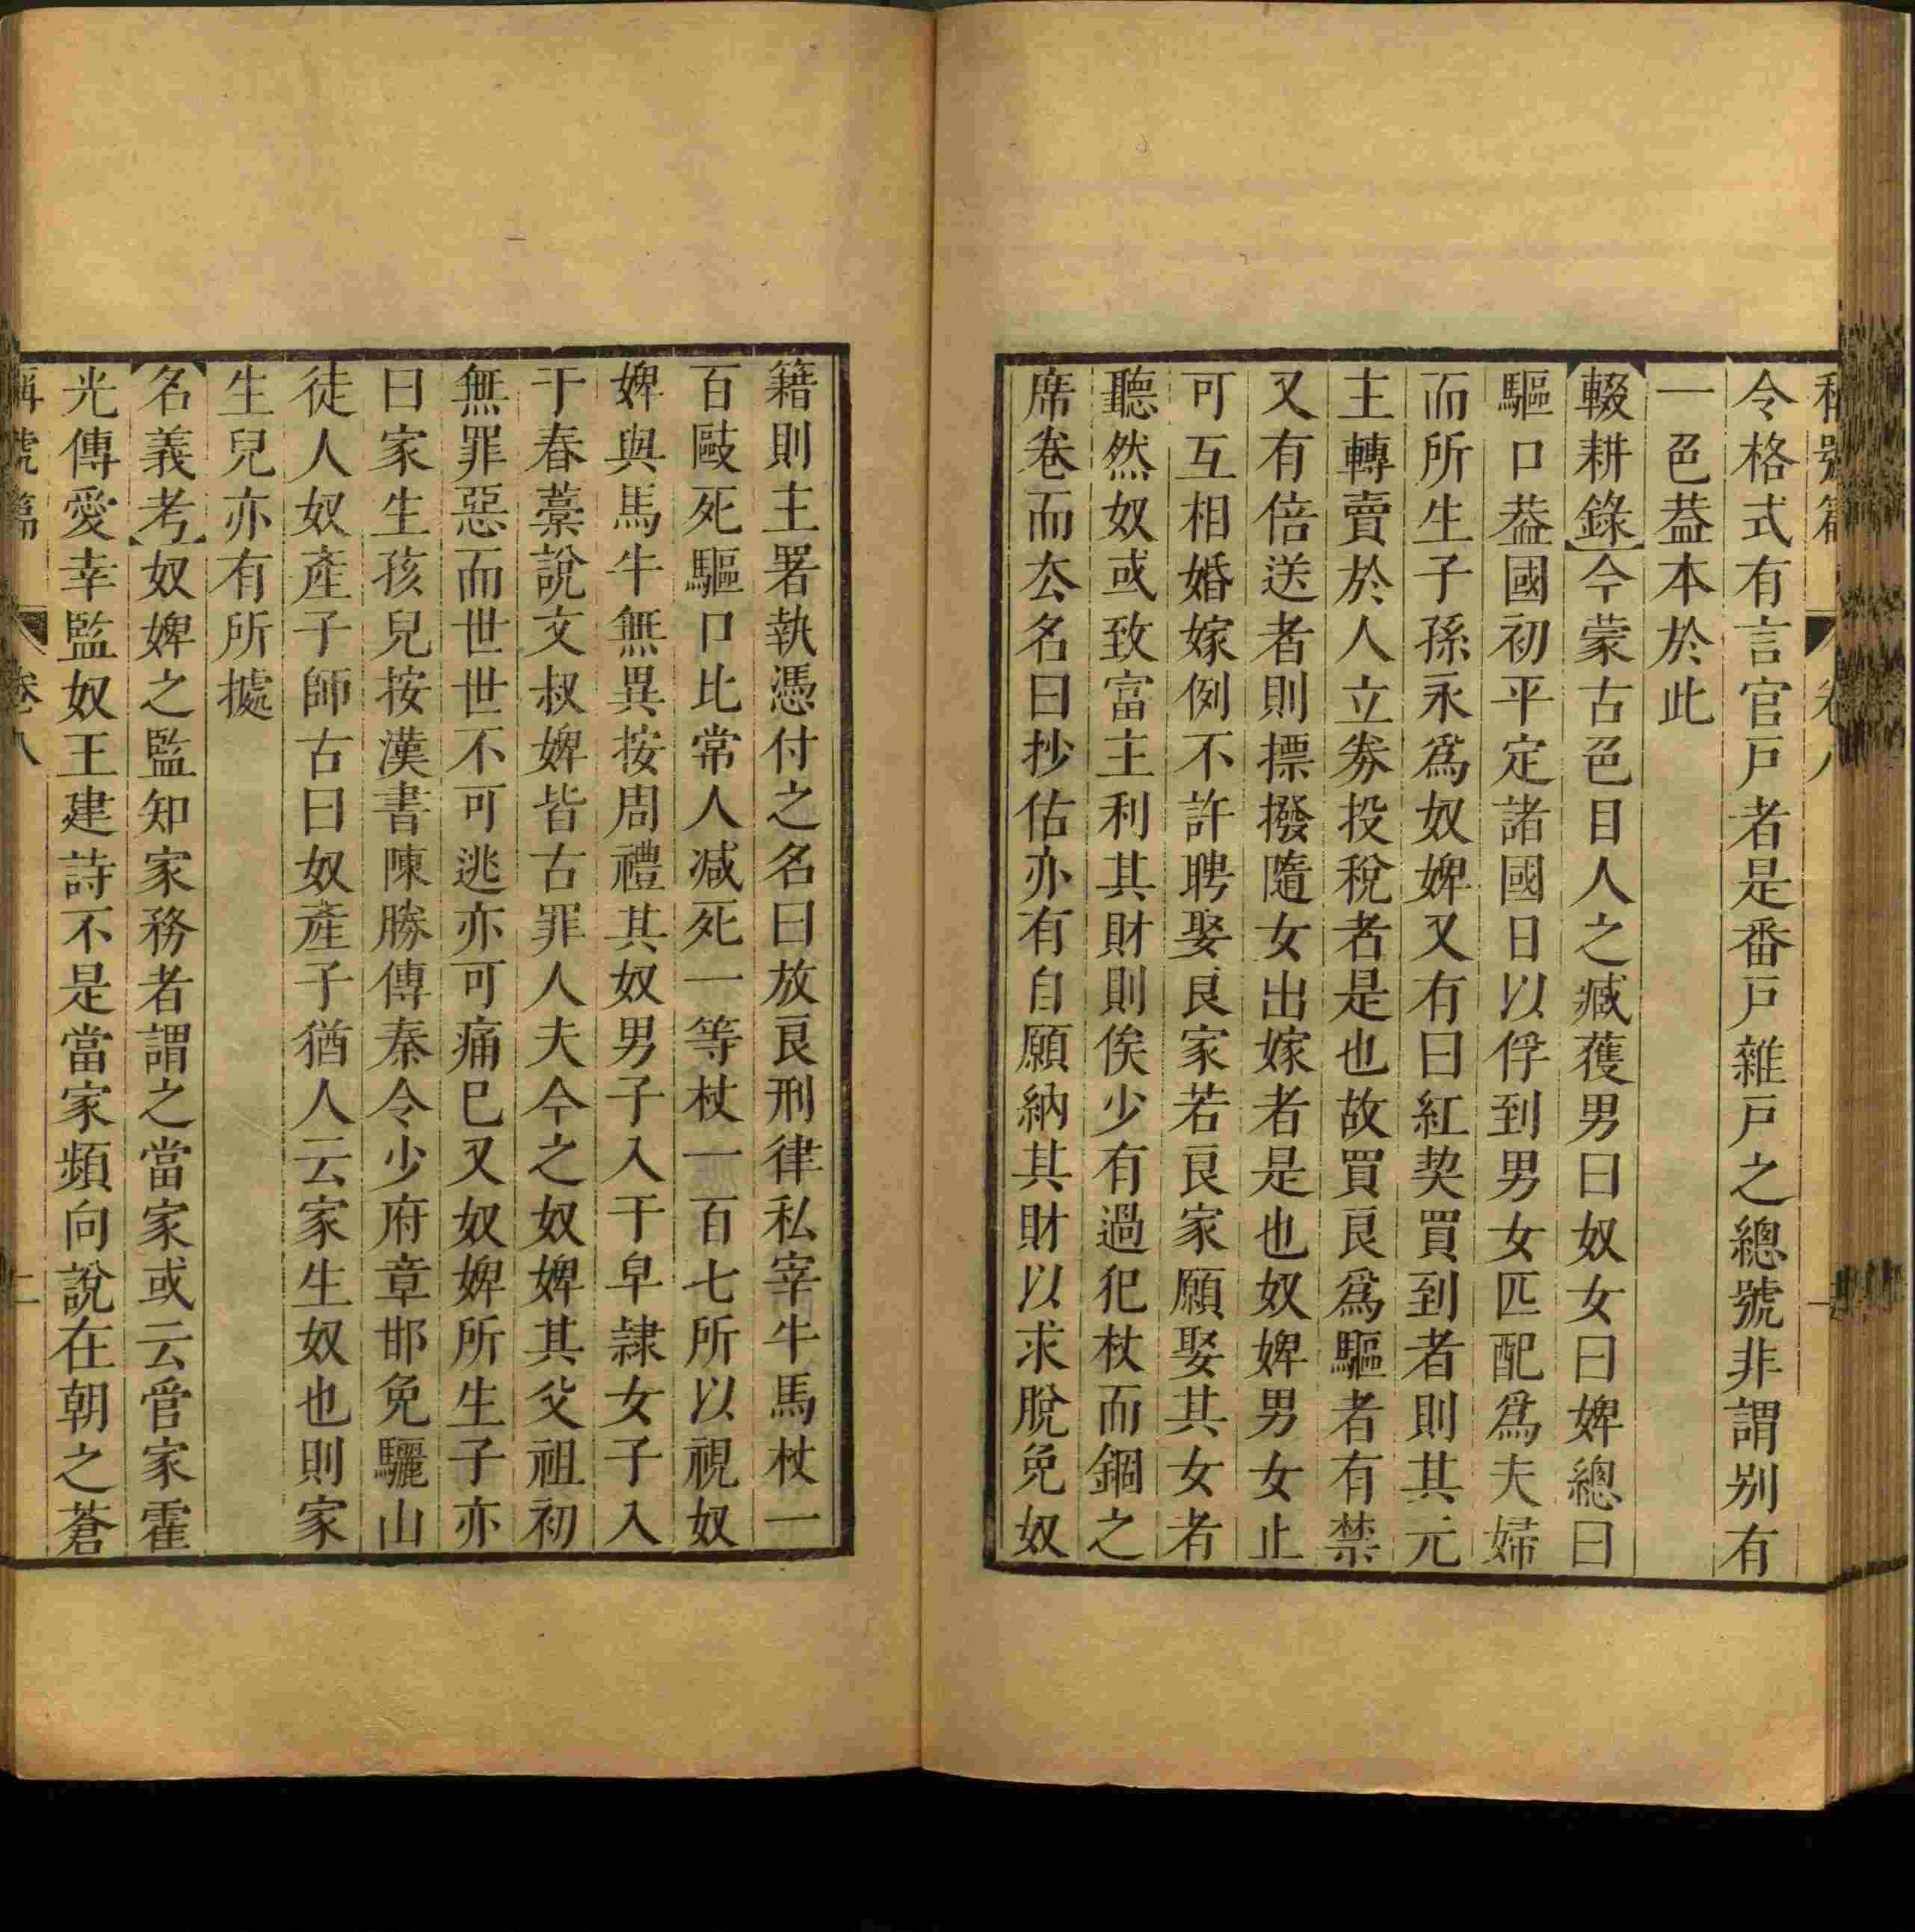 稱號篇 卷八 一
令格式有言官戸者是番戸雜戸之總號非謂别有
一色葢本於此
輟耕錄今蒙古色目人之臧獲男曰奴女曰婢總曰
驅口葢國初平定諸國日以俘到男女匹配爲夫婦
而所生子孫永爲奴婢又有曰紅契買到者則其元
主轉賣於人立劵投稅者是也故買良爲驅者有禁
又有倍送者則摽撥隨女出嫁者是也奴婢男女止
可互相婚嫁例不許聘娶良家若良家願娶其女者
聽然奴或致富主利其財則俟少有過犯杖而錮之
席卷而厺名曰抄估亦有自願納其財以求脫免奴
籍則主署執憑付之名曰放良刑律私宰牛馬杖一
百毆死驅口比常人减死一等杖一百七所以視奴
婢與馬牛無異按周禮其奴男子入于皁隷女子入
于春藁說文叔婢皆古罪人夫今之奴婢其父祖初
無罪惡而世世不可逃亦可痛巳又奴婢所生子亦
曰家生孩兒按漢書陳勝傳秦令少府章邯免驪山
徒人奴產子師古曰奴產子猶人云家生奴也則家
生兒亦有所據
名義考奴婢之監知家務者謂之當家或云管家霍
光傳愛幸監奴王建詩不是當家頻向說在朝之蒼
稱號篇 卷八 二